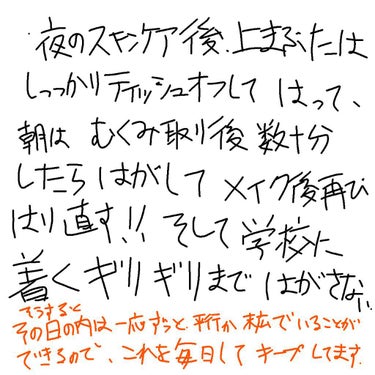 ・夜のスキンケア後、上まぶたは
しっっかりティッシュオフして はって、
朝は むくみ取り後 数十分
したら はがして メイク後再び
はり直す!! そして 学校に
着くギリギリまで はがさない!!
そうすると
その日の内は一応ずっと平行か末広でいることが
できるので、これを毎日して キープしてます.